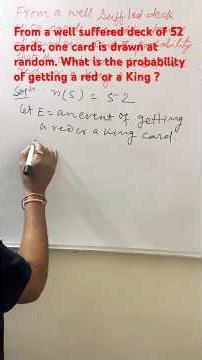 From a well suffled deck
From a well suffered deck of 52
cards, one card is drawn at
random. What is the probability
of getting a red or a King ?
Solⁿ n(S) = 52
Let E = an event of getting
a red or a king card.